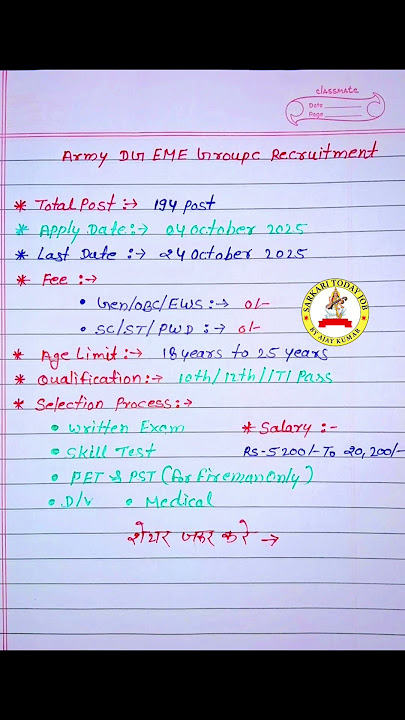 classmate
Date
Page
Army DG EME Groupc Recruitment
* Total Post :→ 194 post
* Apply Date :→ 04 October 2025
* Last Date :→ 24 October 2025
* Fee :→
• Gen/OBC/EWS :→ 0/-
• SC/ST/PWD :→ 0/-
SARKARI TODAY JOB
BY AJAY KUMAR
* Age Limit :→ 18 years to 25 years
* Qualification :→ 10th/12th/ITI Pass
* Selection Process :→
• Written Exam
* Salary :-
• Skill Test
RS-5200/- To 20,200/-
• PET & PST (for fireman only)
• D/V • Medical
शेयर जरूर करे →